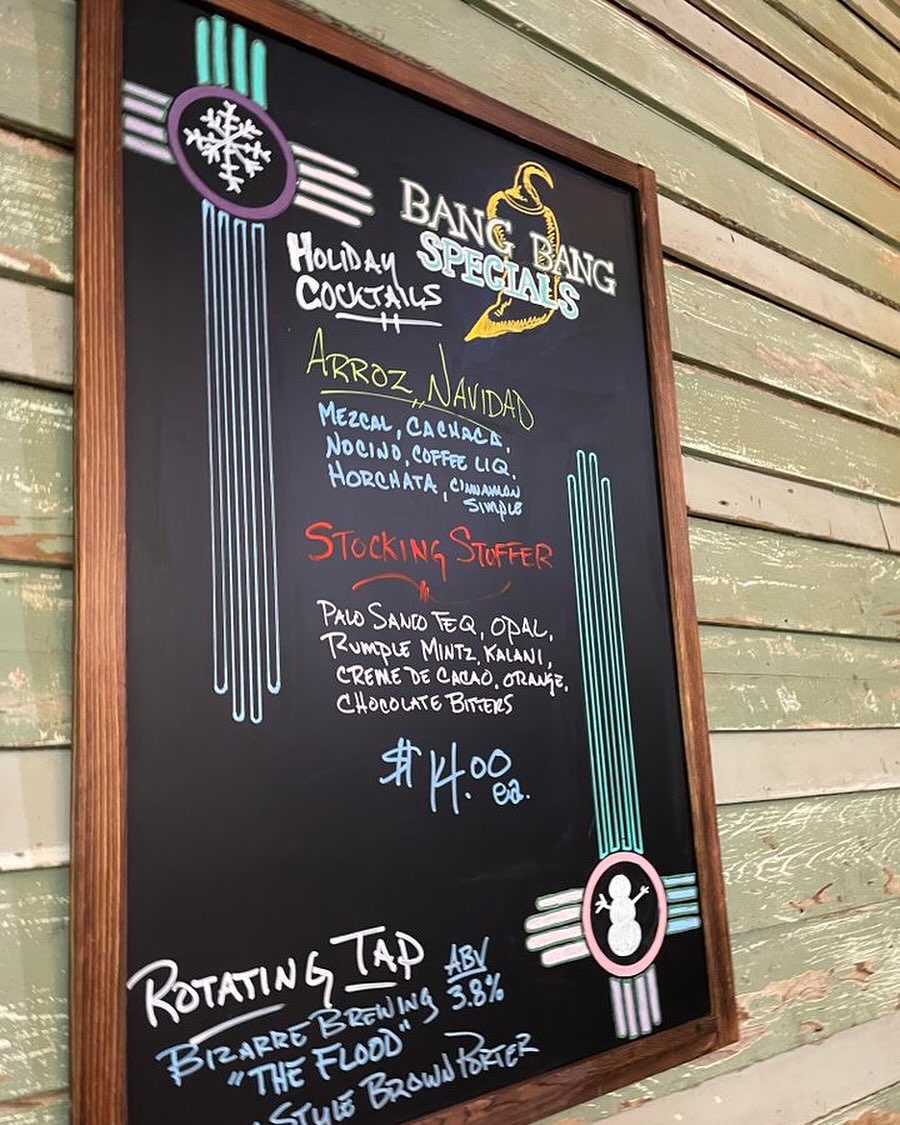 BANG BANG
SPECIALS
HOLIDAY
COCKTAILS
ARROZ NAVIDAD
MEZCAL, CACHACA,
NOCINO, COFFEE LIQ.
HORCHATA, CINNAMON
SIMPLE
STOCKING STUFFER
PALO SANTO TEQ, OPAL,
RUMPLE MINTZ, KALANI,
CREME DE CACAO, ORANGE,
CHOCOLATE BITTERS
$14.00
ea.
ROTATING TAP
ABV
3.8%
BIZARRE BREWING
"THE FLOOD"
STYLE BROWN PORTER